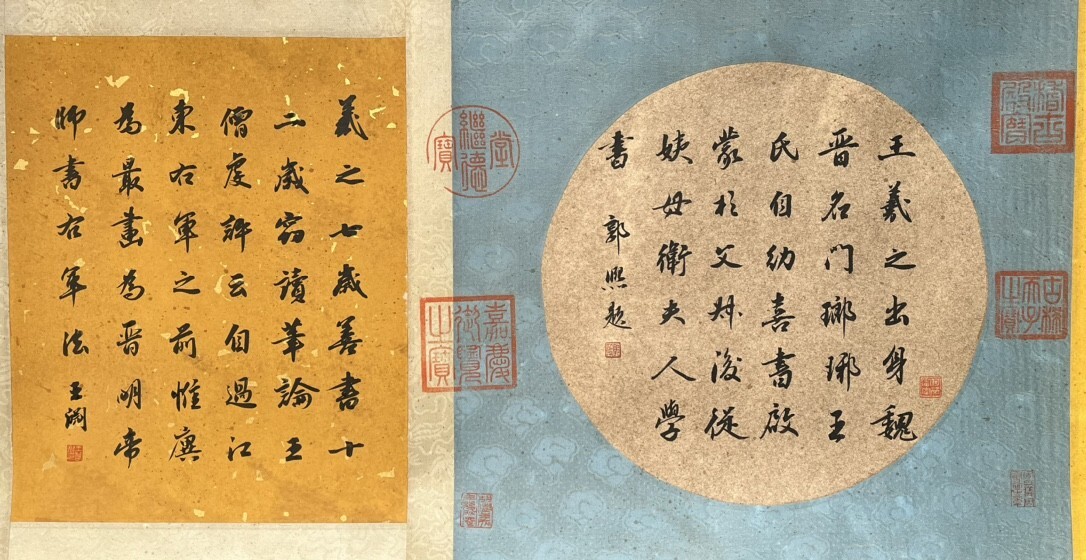 古稀
天子
之寶
王羲之出身魏
晋名门瑯琊王
氏自幼喜書啟
蒙於父叔後從
姨母衛夫人學
書 郭熙題
堂
繼德
寶
嘉慶
御覽
之寶
羲之七歲善書十
二歲窃讀筆論王
僧虔評云自過江
東右軍之前惟廙
為最畫為晋明帝
師書右軍法 王淵